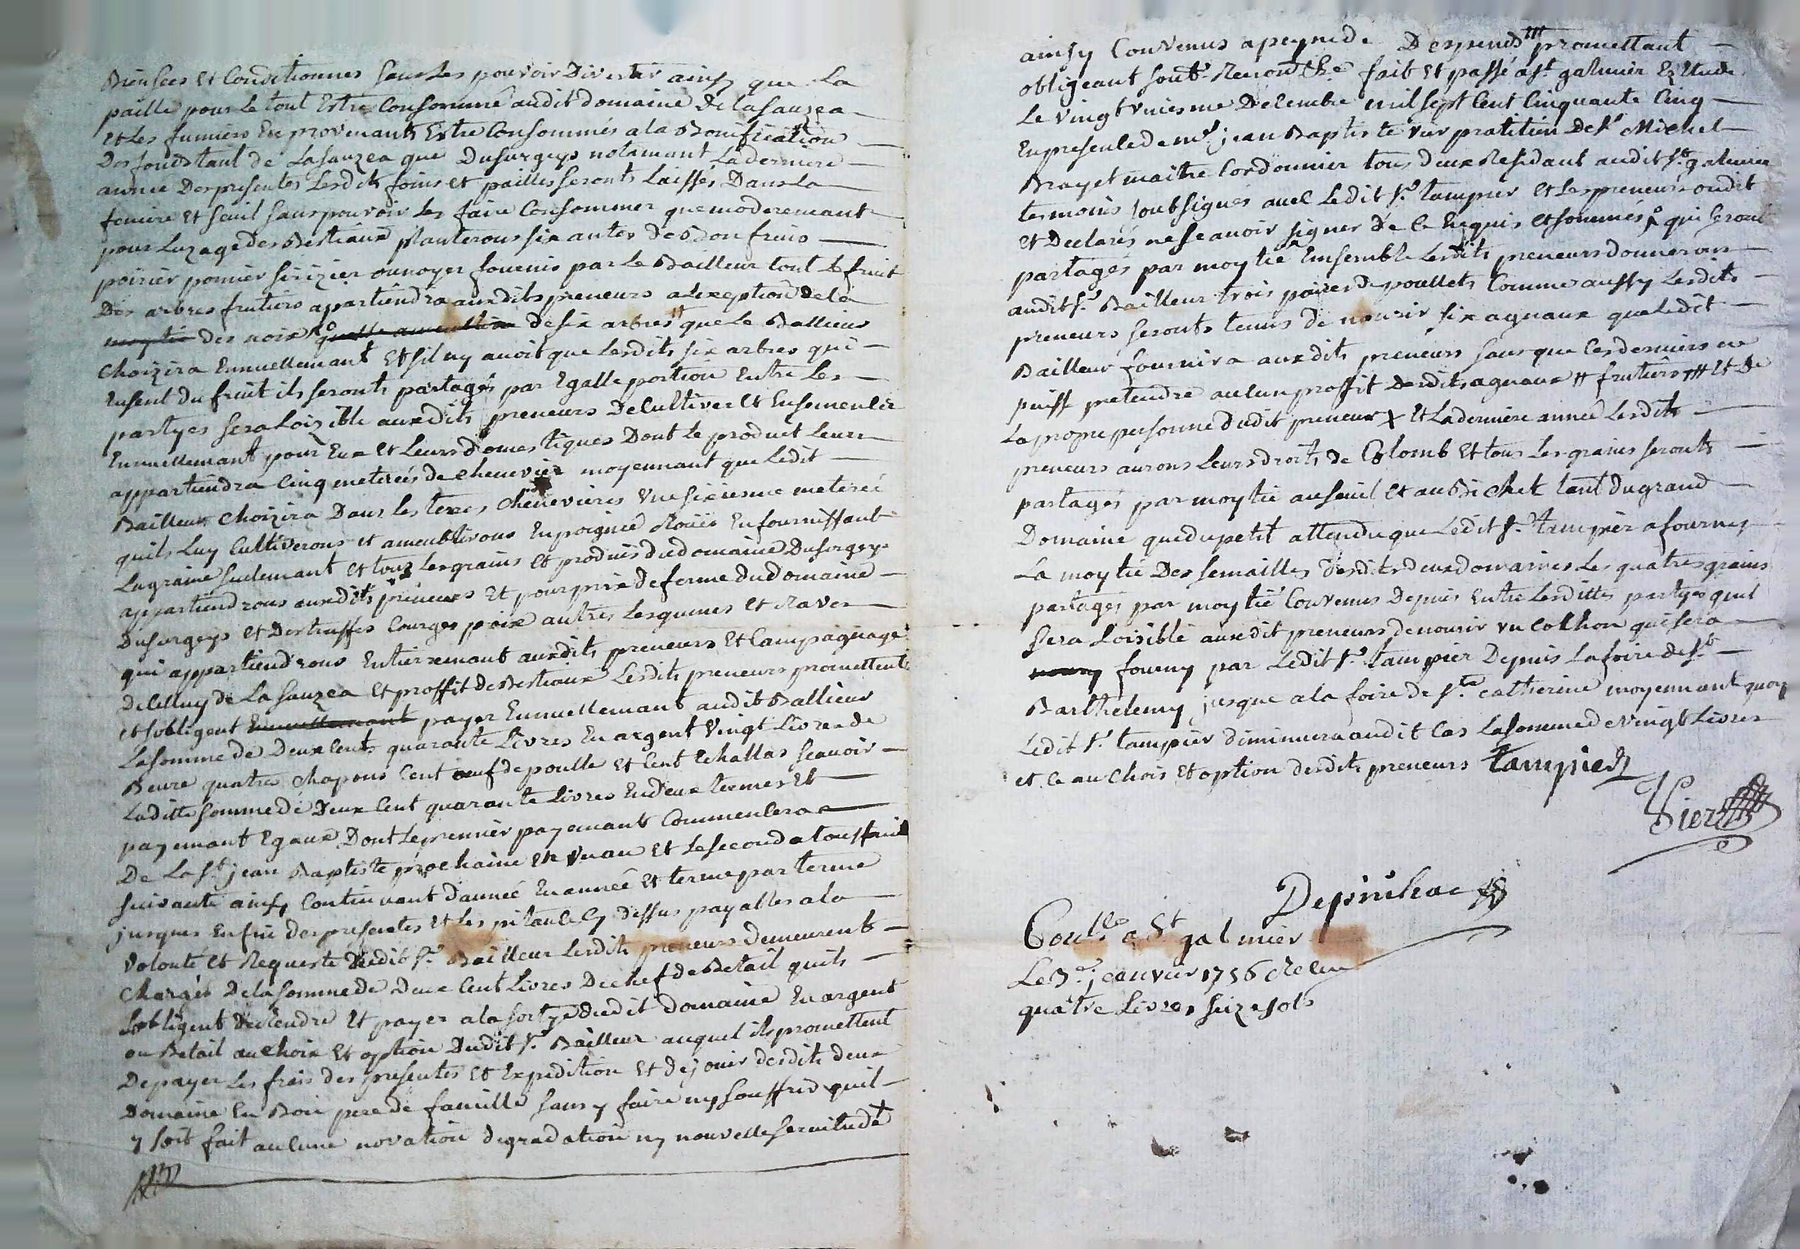 Biensées et Conditionnés sans Les pouvoir Divertir ainsy que La
paille pour Le tout Estre Consommé audit domaine De La Sauzea
et Les fumiers En provenants Estre Consommés a La Bonification
Des fonds tant de La Sauzea que Dusurgeys notamant La derniere
année Des presentes Lesdits foins et pailles seronts Laissés Dans La
feniere et seuil sans pouvoir Les faire Consommer que moderemant
pour Luzage des Bestiaux planterons six antes De Bon fruis
poirier pomier sirizier ou noyer fournis par Le Bailleur tout Le fruit
Des arbres fruitiers appartiendra auxdits preneurs a Lexeption de la
moytié des noix de six arbres # que Le Ballieur
Choizira Ennuellemant Et sil ny avoit que Lesdits six arbres qui
Eusent du fruit ils seronts partagés par Egalle portion Entre Les
partyes sera Loisible auxdits preneurs De Cultiver et Ensemencer
Ennuellemant pour Eux et Leurs domestiques Dont le produit Leurs
appartiendra Cinq meterées de chenevier moyennant que Ledit
Bailleur Choizira Dans Les terres Chenevieres Une sixiesme meterée
quils Luy Cultiverons et ameublirons En poignié En fournissant
La graine seulemant et touz Les grains et produis du domaine Dusurgeys
appartiendrons auxdits preneurs Et pour prix de ferme du domaine
Dusurgeys et Des truffes Courges poix autres Lesgumes et Raves
qui appartiendrons Entierremant auxdits preneurs Et Campagnage
de Celluy de La Sauzea et proffit de Bestiaux Lesdits preneurs promettents
et sobligent Ennuellemant payer Ennuellemant audit Ballieur
La somme de Deux Cents quarante Livres En argent Vingt Livres de
Beure quatres Chapons Cent œuf de poulle et Cent Echallas scavoir
La ditte somme de Deux Cent quarante Livres En deux termes Et
payemant Egaux Dont Le premier payemant Commencera a
De La St jean Baptiste prochaine En Un an Et Le second a toussaint
suivante ainsy Continuant d'année En année Et terme par terme
jusques En fin des presentes et Les pitance Cy dessus payables a la
Volonté et Requeste Dudit Sr. Bailleur Lesdits preneurs Demeurents
Chargés De la somme de Deux Cent Livres De chef de Betail quils
sobligent De rendre Et payer a la sortye dudit domaine En argent
ou Betail au Choix Et option Dudit Sr. Bailleur auquel ils promettent
De payer Les frais des presentes et Expedition Et de jouir desdits deux
Domaine En Bon pere de famille sans y faire ny souffrir quil
y soit fait aucune novation degradation ny nouvelle servitude
ainsy Convenus a peyne de Despends ### promettant
obligeant soubt. Renonc. &c fait et passé a St. galmier Estude
Le vingt uniesme Decembre mil sept Cent Cinquante Cinq
En presence de me. jean Baptiste Vier pratitien De Sr. Michel
Brayet maitre Cordonnier tous deux Residant audit St. galmier
tesmoins soubsignés avec Ledit Sr. tampier et Les preneurs ondit
et Declarés ne scavoir signer de Ce Requis et sommés qui seront
partagés par moytié Ensemble Lesdits preneurs donnerons
audit Sr. Bailleur trois paires de poullets Comme aussy Lesdits
preneurs seronts tenus de nourir six agnaux que Ledit
Bailleur fournira auxdits preneurs sans que Ces derniers ne
puisse pretendre aucun proffit Desdits agnaux # fruitiers ### Et De
La propre personne dudit preneur X Et La derniere année Lesdits
preneurs aurons Leurs droits de Colomb Et tous Les grains seronts
partagés par moytié au seuil et au Bichet tant du grand
Domaine que du petit attendu que Ledit Sr. tampier a fourny
La moytié Des semailles desdits deux domaines Les quatres grains
partagés par moytié Convenus Depuis Entre Lesdittes partyes quil
sera Loisible auxdit preneurs de nourir un Cochon qui sera
nourry fourny par Ledit Sr. tampier Depuis La foire de St.
Barthelemy jusque a la foire de Ste. Catherine moyennant quoy
Ledit Sr. tampier diminuera audit Cas La somme de vingt Livres
et Ce au Chois et option desdits preneurs tampier
Vier
Depinhac
Conllé a St galmier
Le 3e. janvier 1756 Recu
quatre Livres seize sols